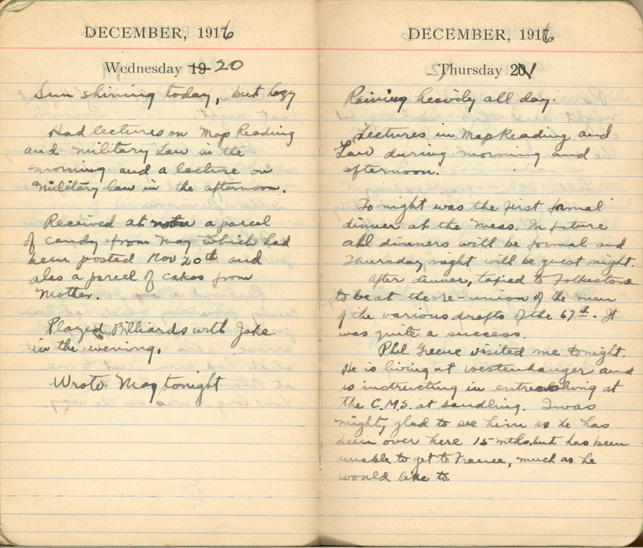 DECEMBER, 1916
Wednesday 19 20
Sun shining today, but hazy
Had lectures on Map Reading
and military Law in the
morning and a lecture on
military law in the afternoon.
Received at noon a parcel
of candy from May which had
been posted Nov 20th and
also a parcel of cakes from
Mother.
Played Billiards with Jake
in the evening.
Wrote May tonight
DECEMBER, 1916
Thursday 20/
Raining heavily all day.
Lectures in Map Reading and
Law during morning and
afternoon.
Tonight was the first formal
dinner at the Mess. In future
all dinners will be formal and
Thursday night will be guest night.
After dinner, taxied to Folkestone
to be at the re-union of the men
of the various drafts of the 67th. It
was quite a success.
Phil Greene visited me tonight.
He is living at Westenhanger and
is instructing in entrenching at
the C.M.S. at Sandling. I was
mighty glad to see him as he has
been over here 15 mths, but has been
unable to get to France, much as he
would like to.